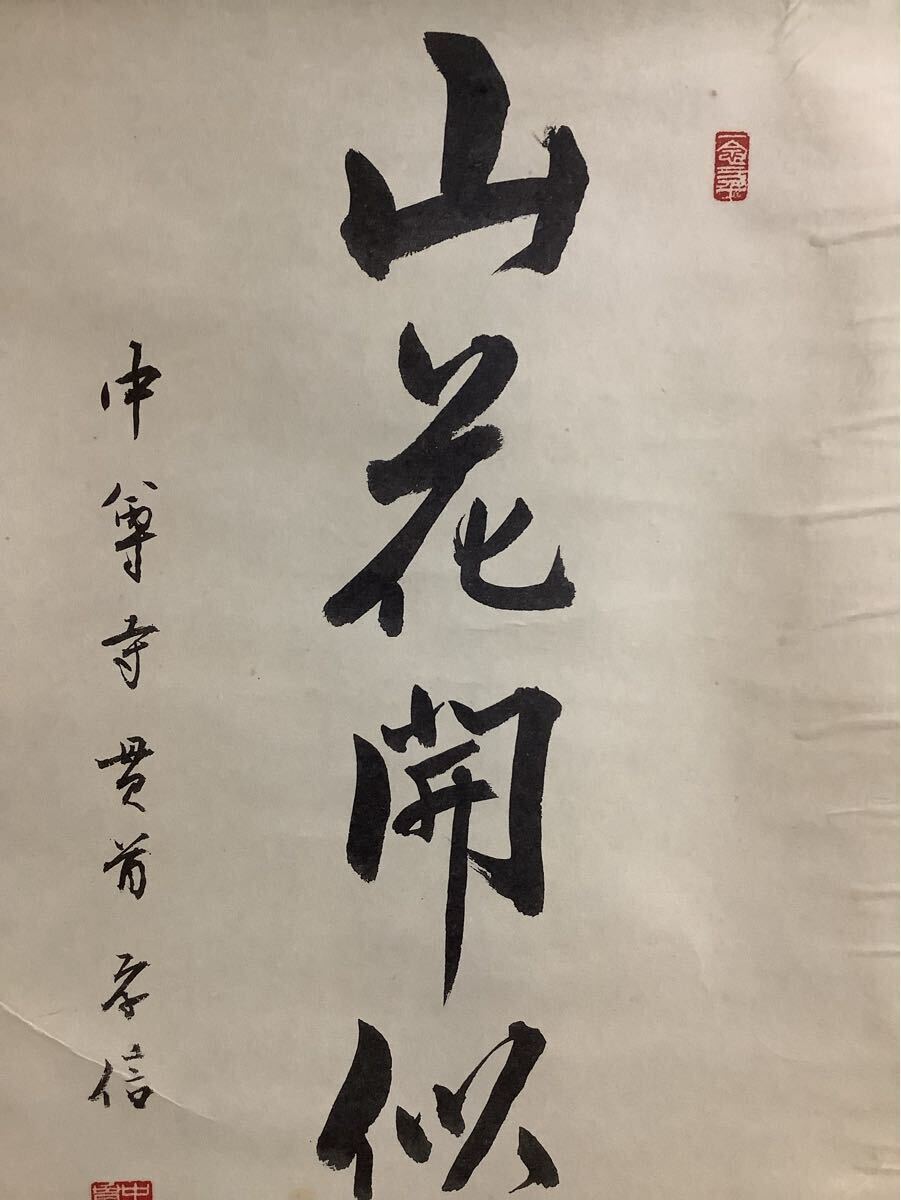 山花開似
中尊寺貫首孝信